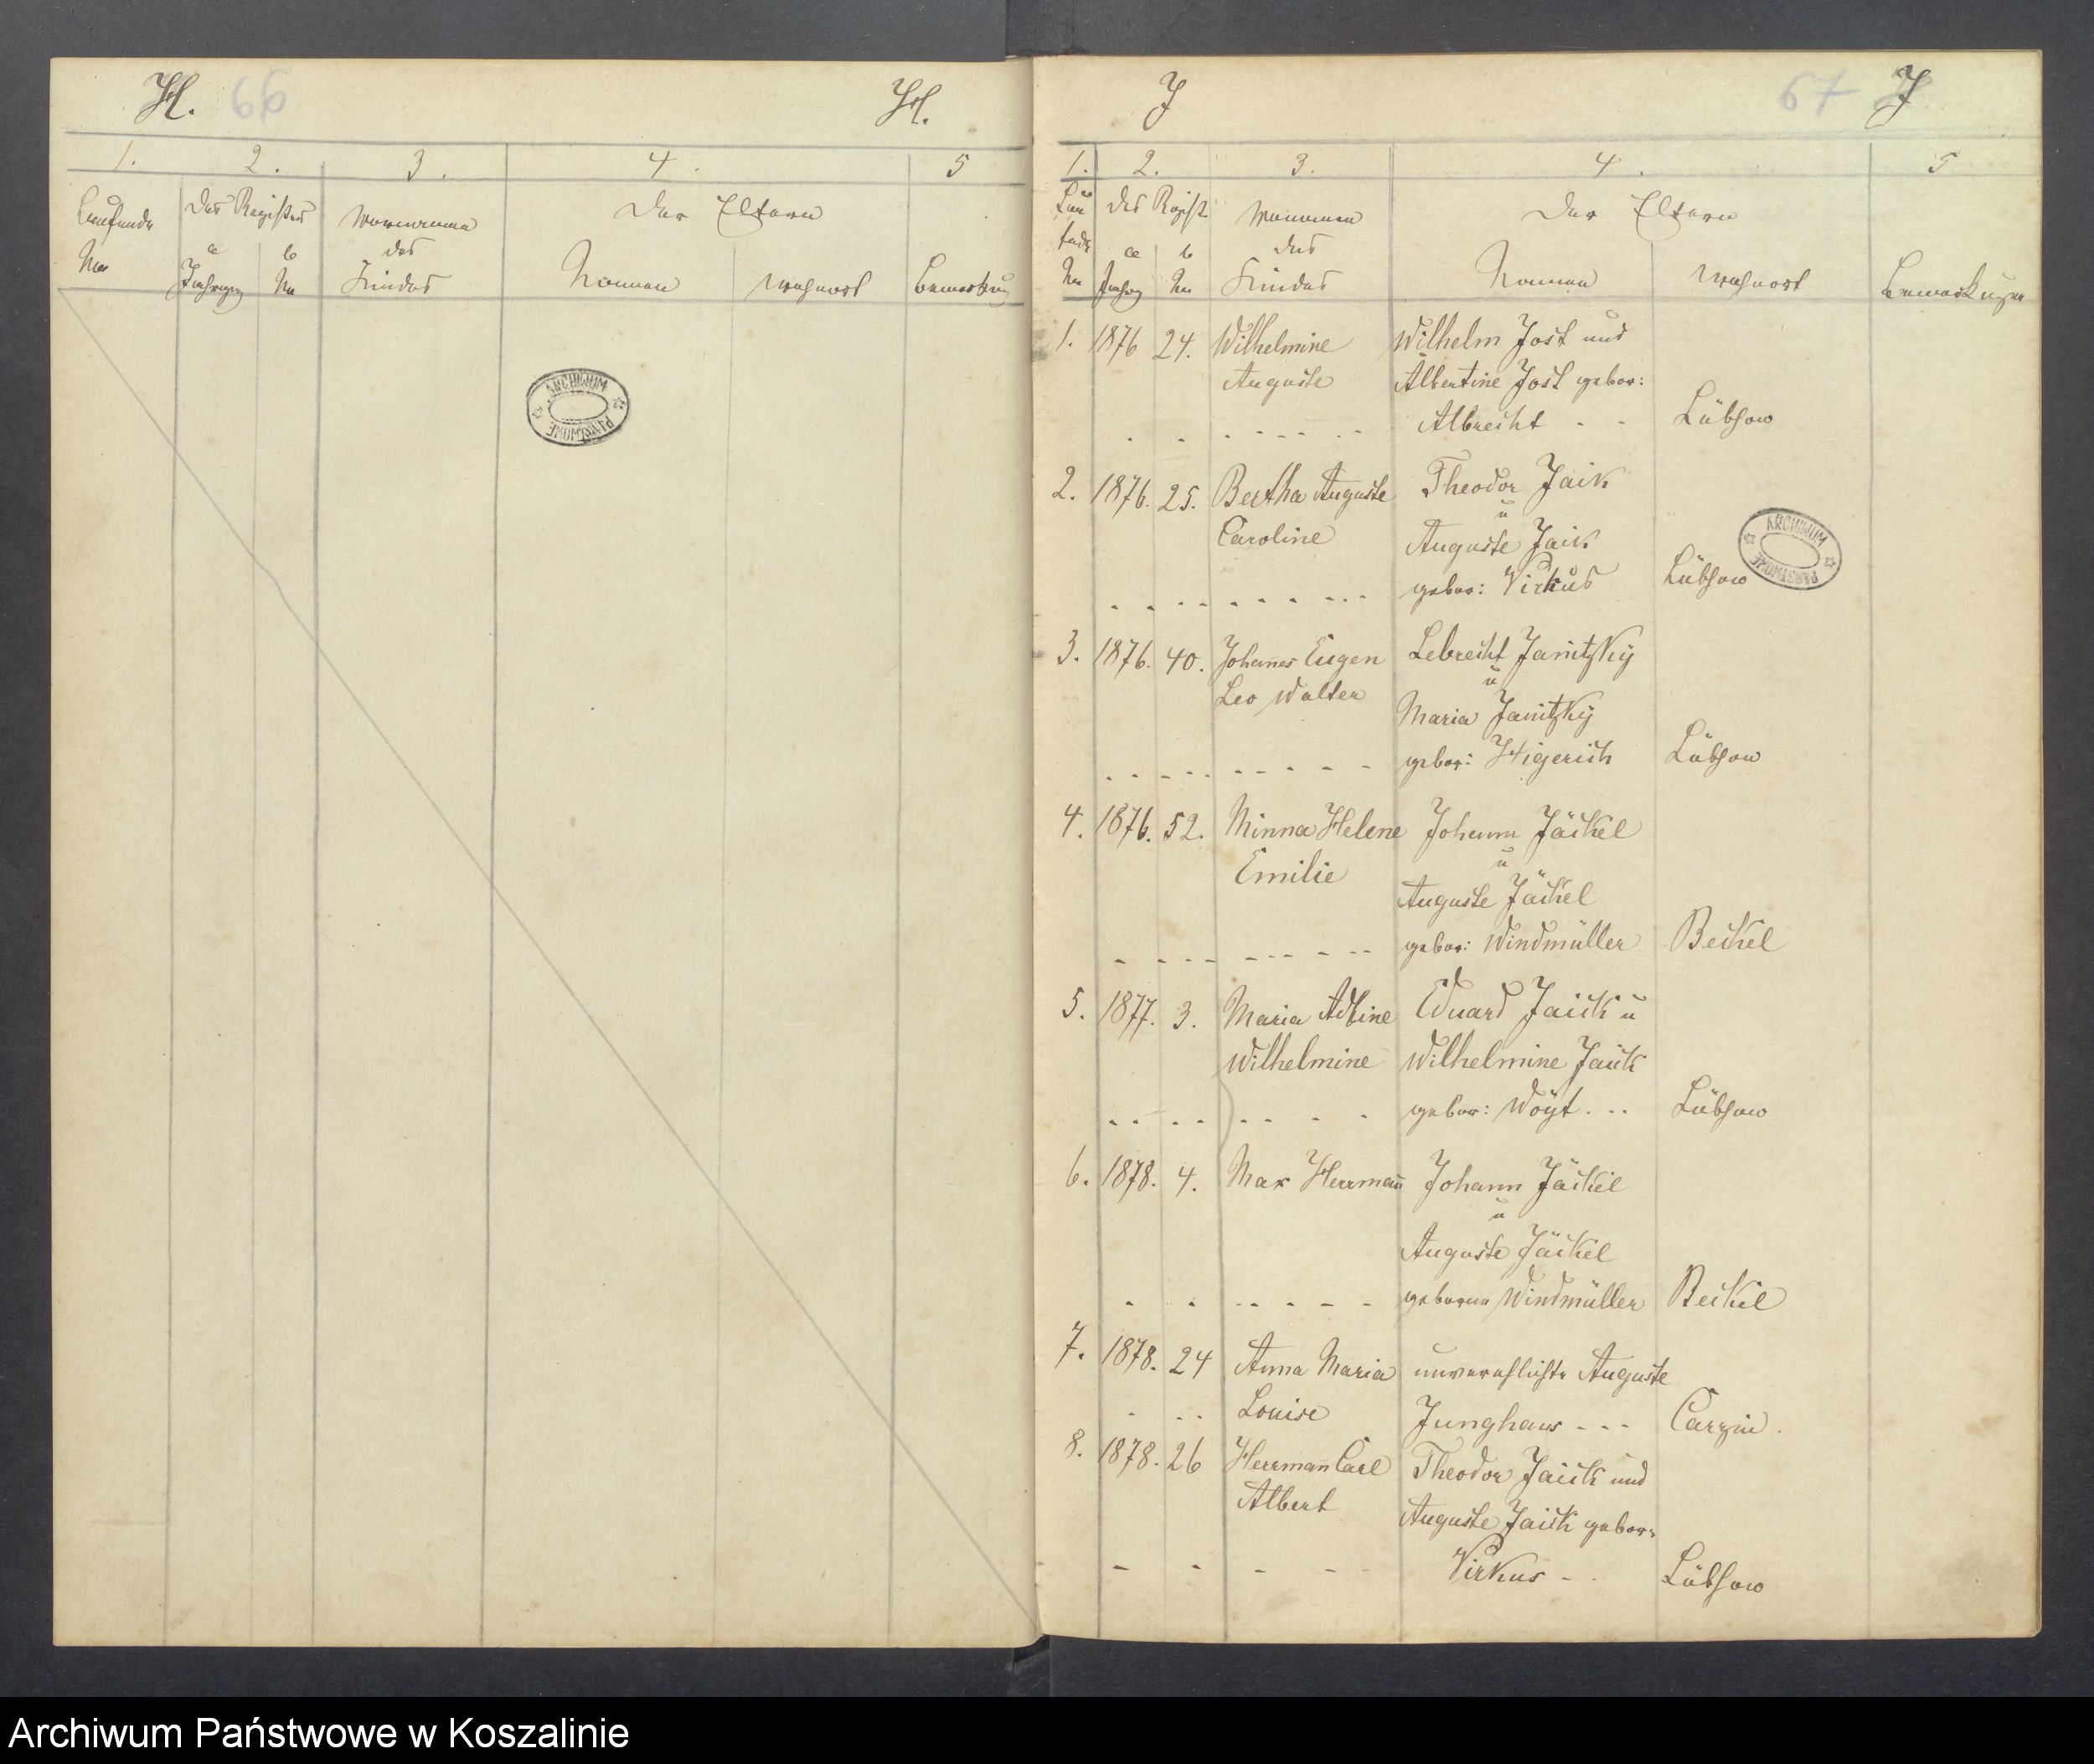 H. 66 H.
1. 2. 3. 4. 5
Laufende Des Registers Vornamen Der Eltern
a b des
No Jahrgang No Kindes Namen Wohnort Bemerkung
ARCHIWUM PAŃSTWOWE
J 67 J
1. 2. 3. 4. 5
Lau Des Regist Vornamen Der Eltern
fende a b des
No Jahrg No Kindes Namen Wohnort Bemerkungen
1. 1876 24. Wilhelmine Wilhelm Jost und
Auguste Albertine Jost gebor:
Albrecht - - Lübsow
2. 1876. 25. Bertha Auguste Theodor Jaik
u
Caroline Auguste Jaik
gebor: Virkus Lübsow
ARCHIWUM PAŃSTWOWE
3. 1876. 40. Johannes Eugen Lebrecht Janitzky
u
Leo Walter Maria Janitzky
gebor: Higerich Lübsow
4. 1876. 52. Minna Helene Johann Jäckel
u
Emilie Auguste Jäckel
gebor: Windmüller Beckel
5. 1877. 3. Maria Adline Eduard Jaick u
Wilhelmine Wilhelmine Jaick
gebor: Woyt. .. Lübsow
6. 1878. 4. Max Herrmañ Johann Jäckel
u
Auguste Jäckel
geborne Windmüller Beckel
7. 1878. 24 Anna Maria unverehlichte Auguste
Louise Junghans - - - Carzin.
8. 1878. 26 Hermañ Carl Theodor Jaick und
Albert Auguste Jaick gebor:
Virkus - . Lübsow
Archiwum Państwowe w Koszalinie